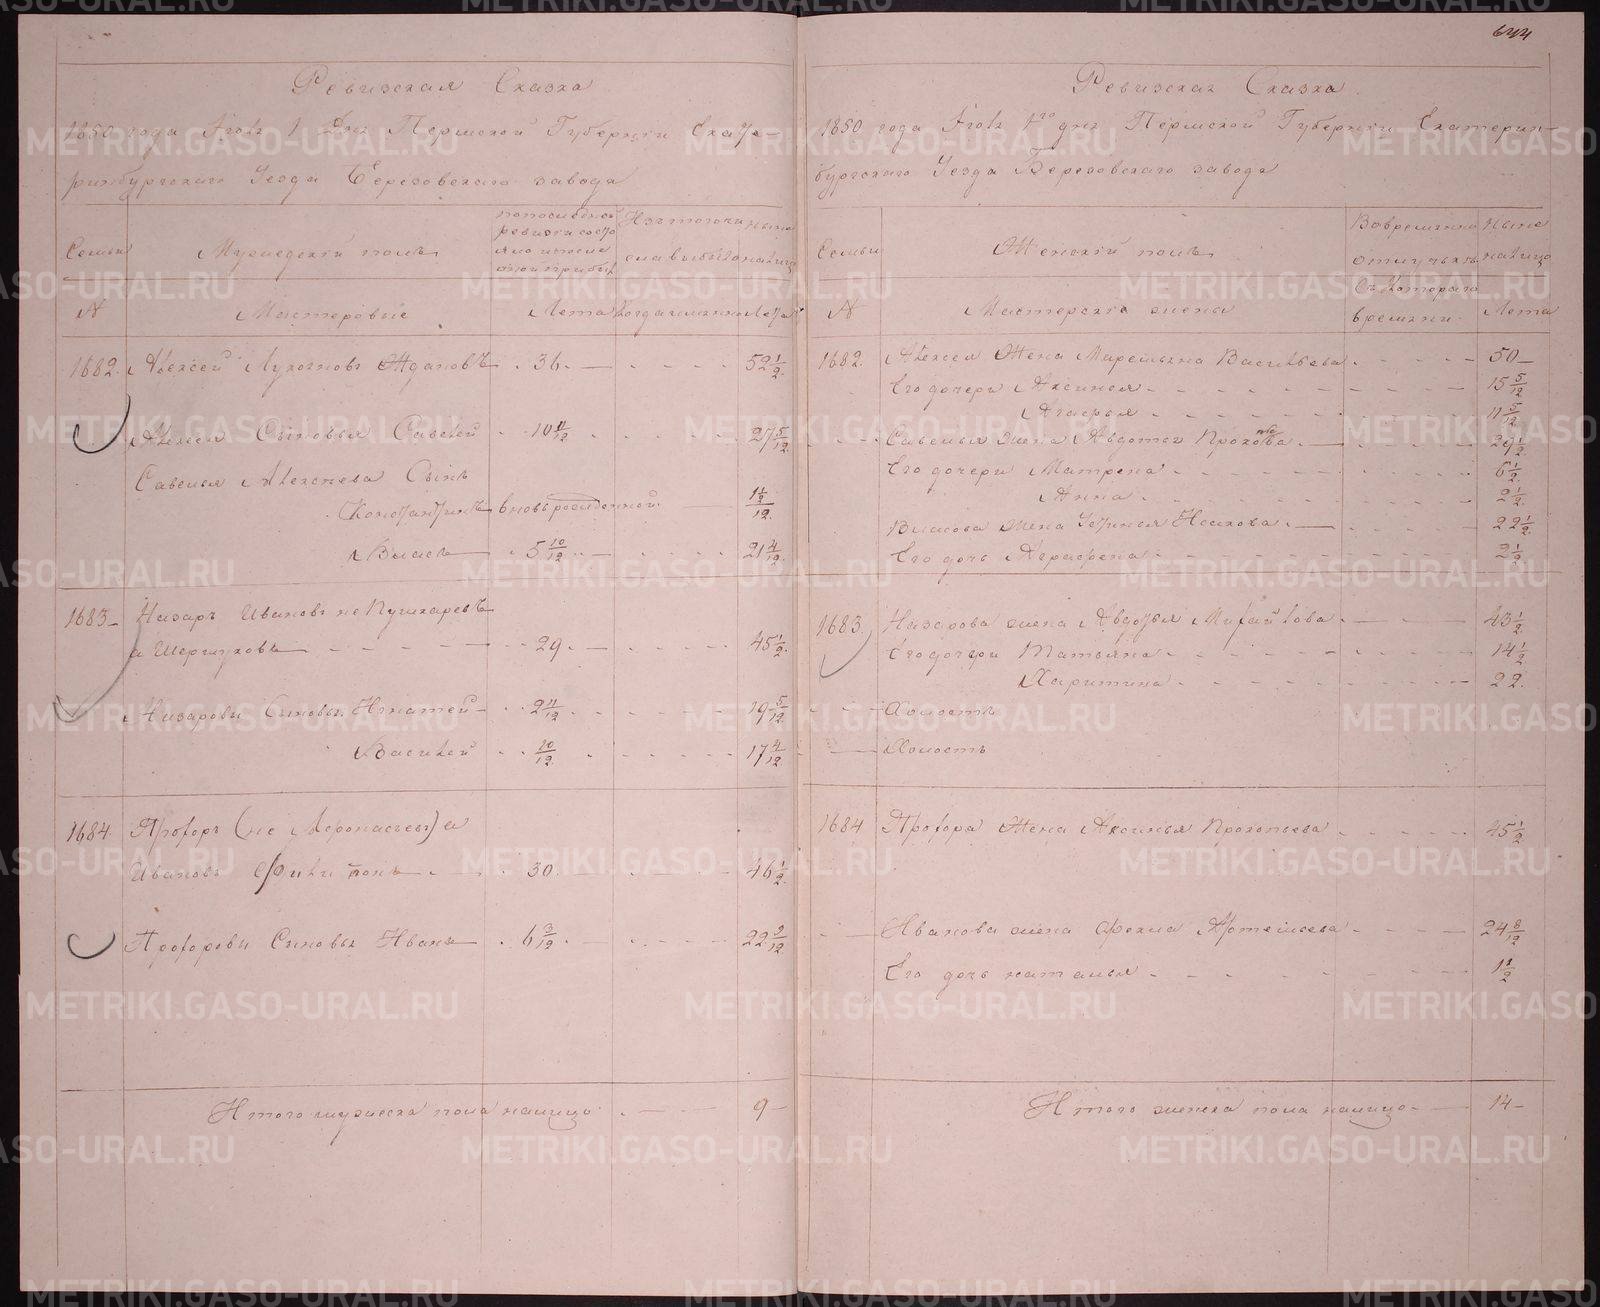 644
Ревизская Сказка
1850 года Iюля 1 Дня Пермской Губернiи Екате-
ринбургского Уезда Березовского завода
Семьи
Мужеский полъ
по последней
ревизiи состо
яло и после
оной прибыл
Изъ того числа выбыло
ныне
налицо
№
Мастеровые
Лета
Когда именно
Лета
1682. Алексей Ждановъ 36 52 1/2
Алексея Сыновья Савелей 10 11/12 27 5/12
Савелья Алексеева Сынъ
Константинъ вновь рожденной 1 2/12
Власъ 5 10/12 21 4/12
1683 Назаръ Ивановъ не Пушкаревъ
а Шершуковъ 29 45 1/2
Назаровы Сыновья Игнатей 2 11/12 19 5/12
Василей 10/12 17 4/12
1684 Прохоръ (не Афонасьевъ) а
Ивановъ 30 46 1/2
Прохоровы Сыновья Иванъ 6 3/12 22 9/12
Итого мужеска пола налицо 9
Ревизская Сказка
1850 года Iюля 1го дня Пермской Губернiи Екатерин-
бургского Уезда Березовского завода
Семьи
Женскiй полъ
Во временной
отлучке
ныне
налицо
№
Мастерскiе жены
Съ котораго
времяни
Лета
1682. Алексея Жена Маремьяна Васильева 50
Его дочери Аксинья 15 5/12
Агафья 11 5/12
Савелья жена Авдотья 29 1/2
Его дочери Матрена 6 1/2
Анна 2 1/2
Власова жена Устинья Исакова 22 1/2
Его дочь Аграфена 2 1/2
1683 Назарова жена Авдотья Михайлова 43 1/2
Его дочери Татьяна 14 1/2
Харитина 22
Холостъ
Холостъ
1684 Прохора Жена Аксинья Прокопьева 45 1/2
Иванова жена Фекла Артемьева 24 8/12
Его дочь Наталья 1 1/2
Итого женска пола налицо 14
METRIKI.GASO-URAL.RU